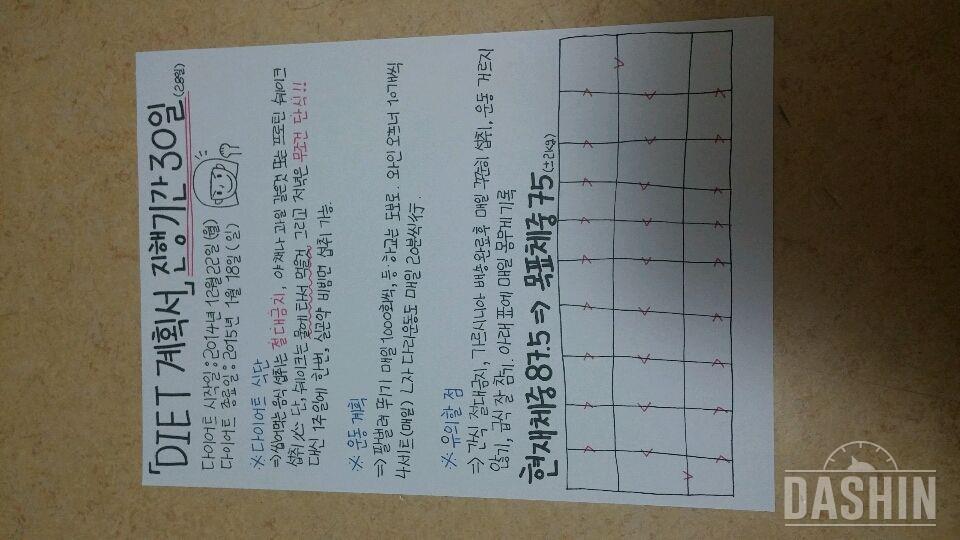 「DIET 계획서」 진행기간 30일 (28일)
다이어트 시작일 : 2014년 12월 22일 (월)
다이어트 종료일 : 2015년 1월 18일 (일)
※ 다이어트 식단
⇒ 씹어먹는 음식 섭취는 절대금지, 야채나 과일 같은것 또는 프로틴 쉐이크
섭취 쓰 단, 쉐이크는 물에 타서 먹을것, 그리고 저녁은 무조건 단식!!
대신 1주일에 한번, 실곤약 비빔면 섭취 가능.
※ 운동 계획
⇒ 팔벌려 뛰기 매일 1000회씩, 등 하교는 도보로. 와인 오프너 10개씩
4세트(매일) L자 다리운동도 매일 20분씩行.
※ 유의할 점
⇒ 간식 절대금지, 가르시니아 배송완료후 매일 꾸준히 섭취, 운동 거르지
않기, 급식 잘 참기. 아래 표에 매일 몸무게 기록
현재체중 87.5 ⇒ 목표체중 75 (±2kg)
DASHIN